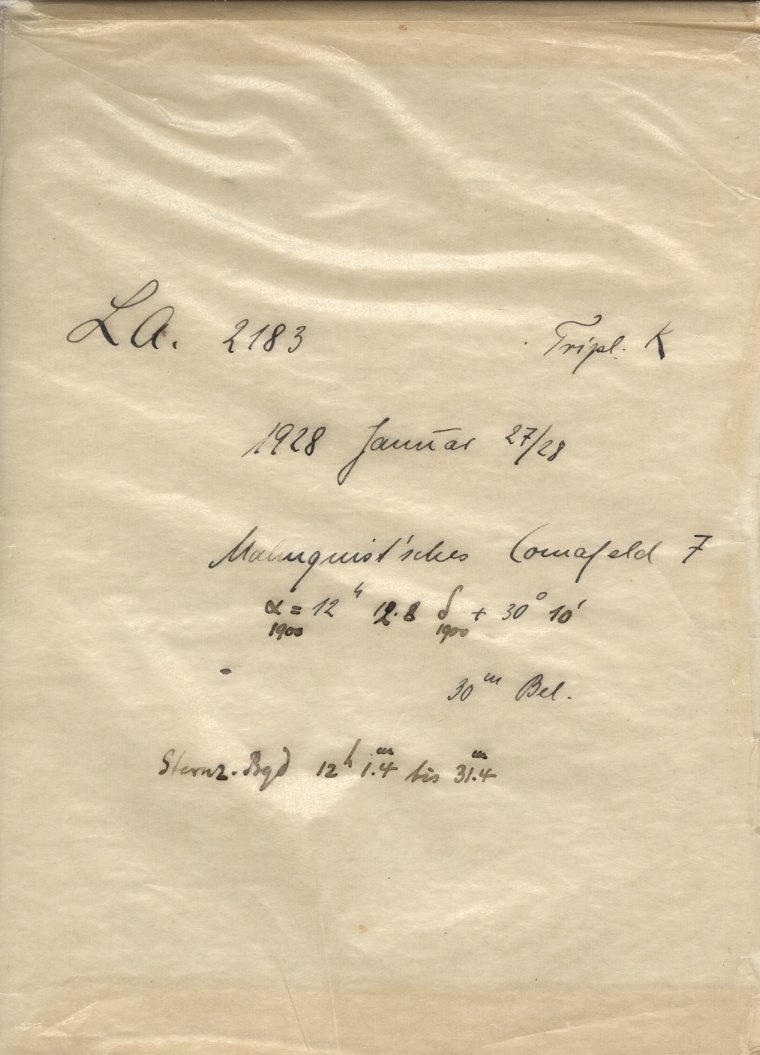 L.A. 2183 Tripl. K
1928 Januar 27/28
Malmquist'sches Comafeld 7
α = 12ʰ 12.8 δ + 30° 10'
1900 1900
30ᵐ Bel.
Sternz. Bgd 12ʰ 1.ᵐ4 bis 31.ᵐ4